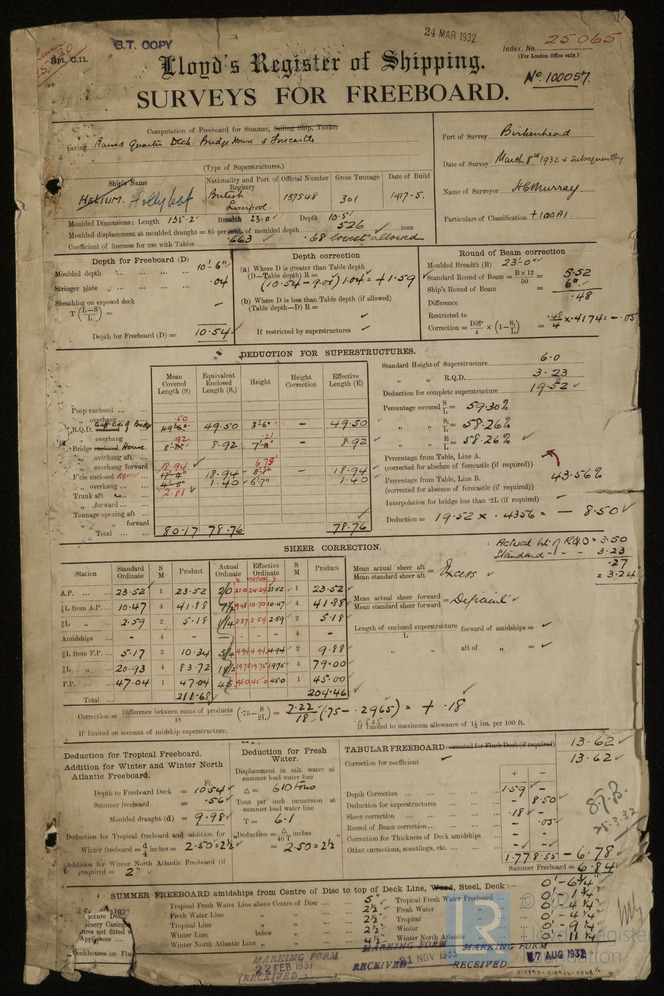 S.T. COPY
24 MAR 1932
Index. No. 25065
(For London Office only.)
Rpt. C.11.
Lloyd's Register of Shipping.
No 100057.
SURVEYS FOR FREEBOARD.
Computation of Freeboard for Steamer, Sailing Ship, Tanker
having Raised Quarter Deck, Bridge House & Forecastle
(Type of Superstructures.)
Port of Survey Birkenhead
Date of Survey March 8th 1932 & Subsequently
Name of Surveyor H C Murray
Particulars of Classification +100A1.
Ship's Name
Nationality and Port of Registry
Official Number
Gross Tonnage
Date of Build
HELIUM. Hollyleaf
British Liverpool
137548
301
1917-5.
Moulded Dimensions: Length 135.2' Breadth 23.0' Depth 10.5'
Moulded displacement at moulded draught = 85 per cent. of moulded depth 526 tons
Coefficient of fineness for use with Tables .663 .68 lowest allowed
Depth for Freeboard (D)
Moulded depth ... 10'-6"
Stringer plate ... .04
Sheathing on exposed deck
T (L-S/L) =
Depth for Freeboard (D) = 10.54
Depth correction
(a) Where D is greater than Table depth
(D-Table depth) R =
(10.54-9.01) 1.04 = +1.59
(b) Where D is less than Table depth (if allowed)
(Table depth-D) R =
If restricted by superstructures
Round of Beam correction
Moulded Breadth (B) 23'-0"
Standard Round of Beam = B×12/50 = 5.52
Ship's Round of Beam = 6"
Difference .48
Restricted to
Correction = Diff/4 × (1-S1/L) = .48/4 × .4174 = -.05
DEDUCTION FOR SUPERSTRUCTURES.
Mean Covered Length (S)
Equivalent Enclosed Length (S1)
Height
Height Correction
Effective Length (E)
Poop enclosed
" overhang
R.Q.D. 49.50 3'-6" - 49.50
" overhang
Bridge House 8.92 - 8.92
" overhang aft
" overhang forward
F'cle enclosed 18.94 18.94 - 18.94
" overhang 2.81 1.40 6'7" 1.40
Trunk aft
" forward
Tonnage opening aft
" forward
Total 80.17 78.76 78.76
Standard Height of Superstructure 6.0
" " R.Q.D. 3.23
Deduction for complete superstructure 19.52
Percentage covered S/L = 59.30%
" " S1/L = 58.26%
" " E/L = 58.26%
Percentage from Table, Line A.
(corrected for absence of forecastle (if required))
Percentage from Table, Line B. 43.56%
(corrected for absence of forecastle (if required))
Interpolation for bridge less than .2L (if required)
Deduction = 19.52 × .4356 = - 8.50
Actual ht of RQD = 3.50
Standard - - - 3.23
.27
= 3.24
SHEER CORRECTION.
Station
Standard Ordinate
S M
Product
Actual Ordinate
Effective Ordinate
S M
Product
A.P. 23.52 1 23.52 23.52 1 23.52
1/6 L from A.P. 10.47 4 41.88 10.47 4 41.88
1/3 L " 2.59 2 5.18 2.59 2 5.18
Amidships - 4 - - 4 -
1/3 L from F.P. 5.17 2 10.34 4.94 2 9.88
1/6 L " 20.93 4 83.72 19.75 4 79.00
F.P. 47.04 1 47.04 45 45.0 1 45.00
Total 211.68 204.46
Mean actual sheer aft
Mean standard sheer aft = Excess
Mean actual sheer forward
Mean standard sheer forward = Deficient
Length of enclosed superstructure forward of amidships =
L
" aft of " =
Correction = Difference between sums of products/18 (.75-S/2L) = 7.22/18 (.75-.2965) = +.18
If limited on account of midship superstructure.
If limited to maximum allowance of 1½ ins. per 100 ft.
Deduction for Tropical Freeboard.
Addition for Winter and Winter North Atlantic Freeboard.
Ft.
Depth to Freeboard Deck = 10.54
Summer freeboard = .56
Moulded draught (d) = 9.98
Deduction for Tropical freeboard and addition for Winter freeboard = d/4 inches = 2.50 = 2½
Addition for Winter North Atlantic Freeboard (if required) = 2"
Deduction for Fresh Water.
Displacement in salt water at summer load water line
Δ = 610 tons
Tons per inch immersion at summer load water line
T = 6.1
Deduction = Δ/40T inches
= 2.50 = 2½
TABULAR FREEBOARD corrected for Flush Deck (if required) 13.62
Correction for coefficient 13.62
+ -
Depth Correction 1.59 -
Deduction for superstructures - 8.50
Sheer correction .18 -
Round of Beam correction - .05
Correction for Thickness of Deck amidships - -
Other corrections, scantlings, etc.
1.77 8.55 - 6.78
Summer Freeboard = 6.84
S.T.B.
25.3.32
SUMMER FREEBOARD amidships from Centre of Disc to top of Deck Line, Wood, Steel, Deck:— 0'-6¾"
Tropical Fresh Water Line above Centre of Disc 5"
Fresh Water Line " " 2½
Tropical Line " " 2½
Winter Line below " 2½
Winter North Atlantic Line " "
Tropical Fresh Water Freeboard 0'-1¾
Fresh Water " 0'-4¼
Tropical " 0'-4¼
Winter " 0'-9¼
Winter North Atlantic " 0'-11¼
MARKING FORM
22 FEB 1937
RECEIVED
MARKING FORM
21 NOV 1933
RECEIVED
MARKING FORM
RECEIVED
17 AUG 1932
LR
© 2021
Lloyd's Register
Foundation